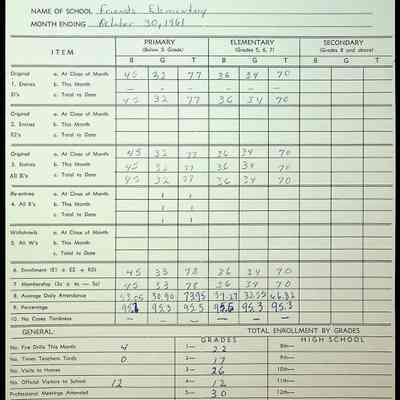 NAME OF SCHOOL Friends Elementary
MONTH ENDING October 30, 1961
ITEM PRIMARY (Below 5 Grade) ELEMENTARY (Grades 5, 6, 7) SECONDARY (Grades 8 and above)
B G T B G T B G T
Original a. At Close of Month 45 32 77 36 34 70
1. Entries b. This Month — — — — — —
E1's c. Total to Date 45 32 77 36 34 70
Original a. At Close of Month
2. Entries b. This Month
E2's c. Total to Date
Original a. At Close of Month 45 32 77 36 34 70
3. Entries b. This Month
All E's c. Total to Date 45 32 77 36 34 70
Re-entries a. At Close of Month 1 1
4. All R's b. This Month 1 1
c. Total to Date 1 1
Withdrawals a. At Close of Month
5. All W's b. This Month
c. Total to Date
6. Enrollment (E1 + E2 + R3) 45 33 78 36 34 70
7. Membership 45 33 78 36 34 70
8. Average Daily Attendance 30.90 73.95
9. Percentage 95.3 95.5 95.3 95.3
10. No. Cases Tardiness — — — — — —
GENERAL: TOTAL ENROLLMENT BY GRADES
HIGH SCHOOL
No. Fire Drills This Month 4 1— 22 8th—
No. Times Teachers Tardy 0 2— 17 9th—
No. Visits to Homes 3— 26 10th—
No. Official Visitors to School 12 4— 12 11th—
Professional Meetings Attended 5— 30 12th—